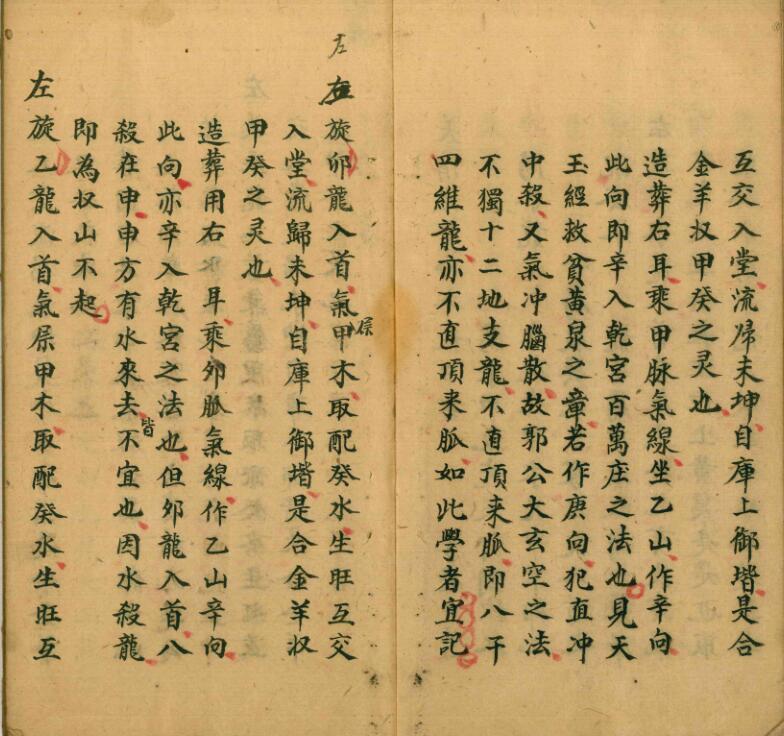 互交入堂流歸未坤自庫上御堦是合
金羊収甲癸之灵也
造葬右耳乘甲脉氣線坐乙山作辛向
此向即辛入乾宮百萬庄之法也見天
玉經救貧黃泉之章若作庚向犯直冲
中殺又氣冲腦散故郭公大玄空之法
不獨十二地支龍不直頂来脈即八干
四維龍亦不直頂来脈如此學者宜記
左
旋卯龍入首氣屬甲木取配癸水生旺互交
入堂流歸未坤自庫上御堦是合金羊収
甲癸之灵也
造葬用右耳乘卯脈氣線作乙山辛向
此向亦辛入乾宮之法也但卯龍入首八
殺在申申方有水來去皆不宜也因水殺龍
即為収山不起
左旋乙龍入首氣屬甲木取配癸水生旺互